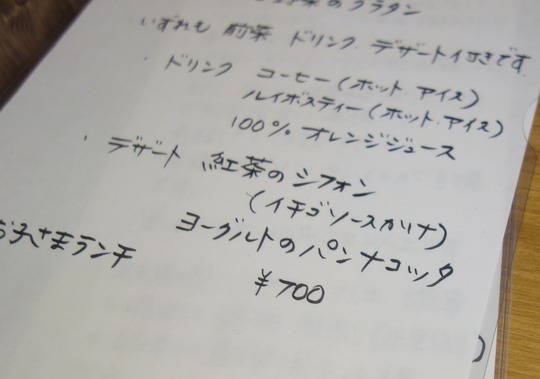 のグラタン
いずれも 前菜 ドリンク デザート付きです
・ドリンク コーヒー(ホット、アイス)
ルイボスティー(ホット、アイス)
100% オレンジジュース
・デザート 紅茶のシフォン
(イチゴソースカリナ)
ヨーグルトのパンナコッタ
お子さまランチ
¥700
)